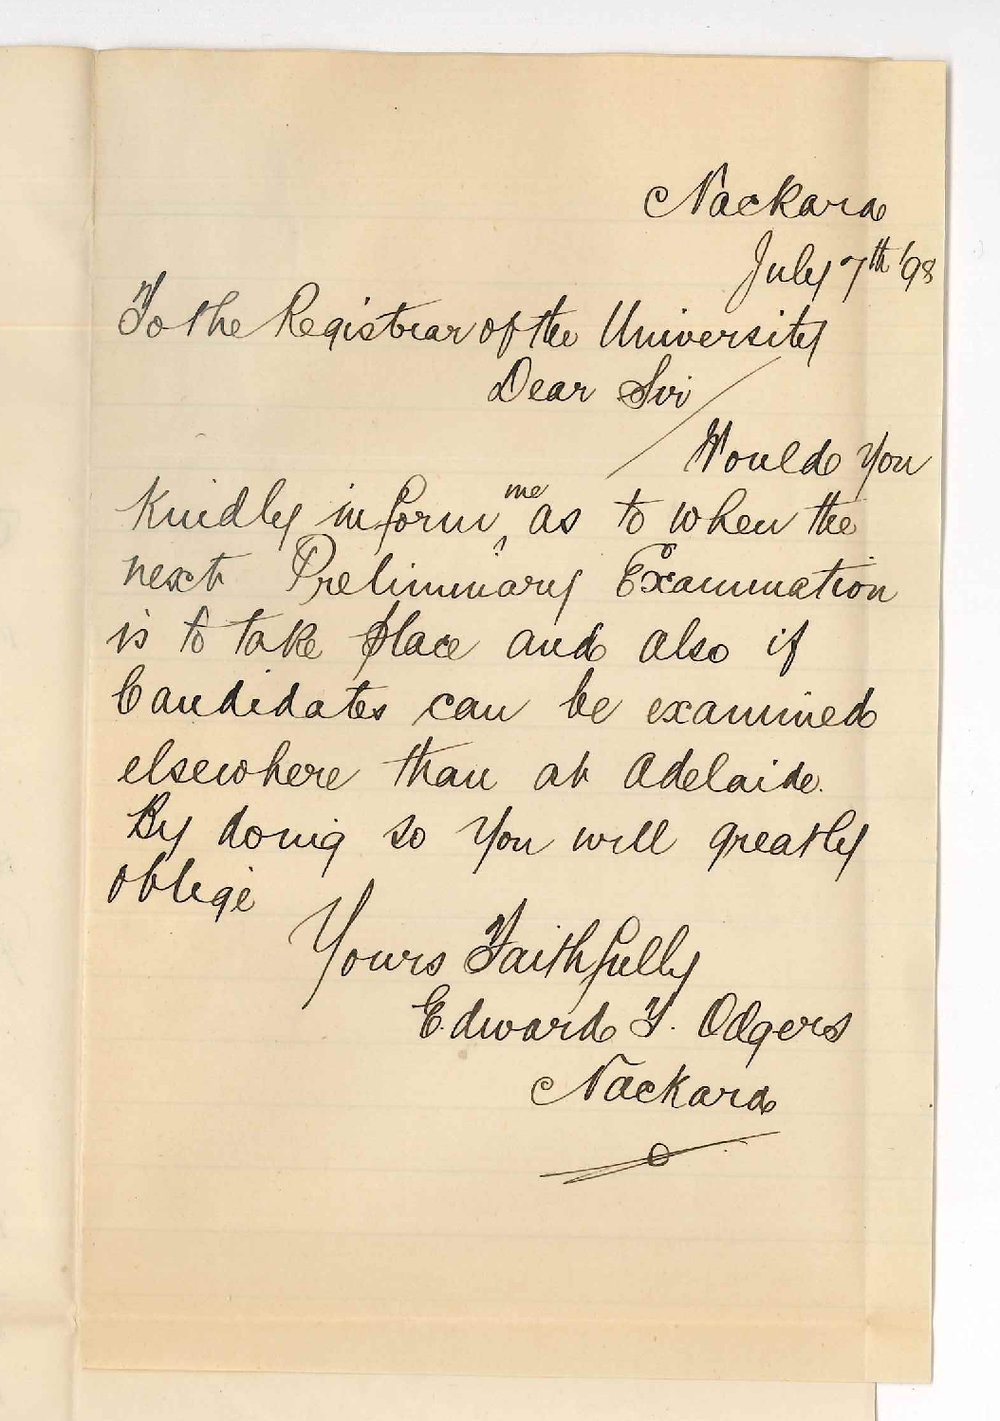 Nackara
July 7th '98
To the Registrar of the University
Dear Sir
Would you
Kindly inform me as to when the
next Preliminary Examination
is to take place and also if
Candidates can be examined
elsewhere than at Adelaide.
By doing so you will greatly
oblige
Yours Faithfully
Edward Y. Odgers
Nackara